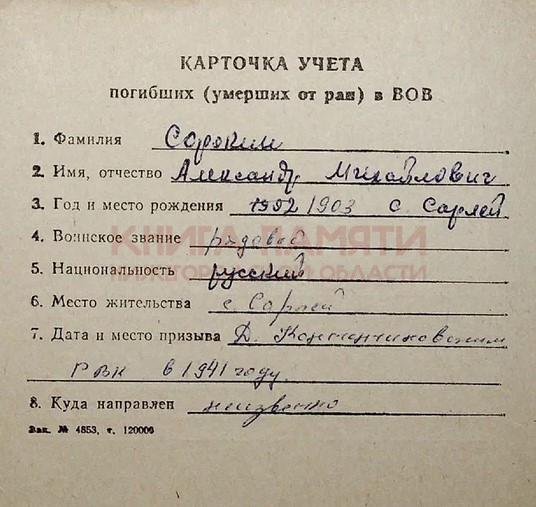 КАРТОЧКА УЧЕТА
погибших (умерших от ран) в ВОВ
1. Фамилия Сорокин
2. Имя, отчество Александр Михайлович
3. Год и место рождения 1902 1903 с. Сарлей
4. Воинское звание рядовой
КНИГА ПАМЯТИ
5. Национальность русский
НИЖЕГОРОДСКОЙ ОБЛАСТИ
6. Место жительства с. Сарлей
7. Дата и место призыва Д. Константиновским
РВК в 1941 году.
8. Куда направлен неизвестно
Зак. № 4853, т. 120000